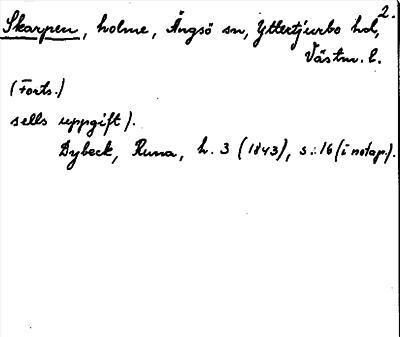 2.
Skarpen, holme, Ängsö sn, Yttertjurbo hd,
Västm. l.
(Forts.)
sells uppgift).
Dybeck, Runa, h. 3 (1843), s. 16 (i notap.).